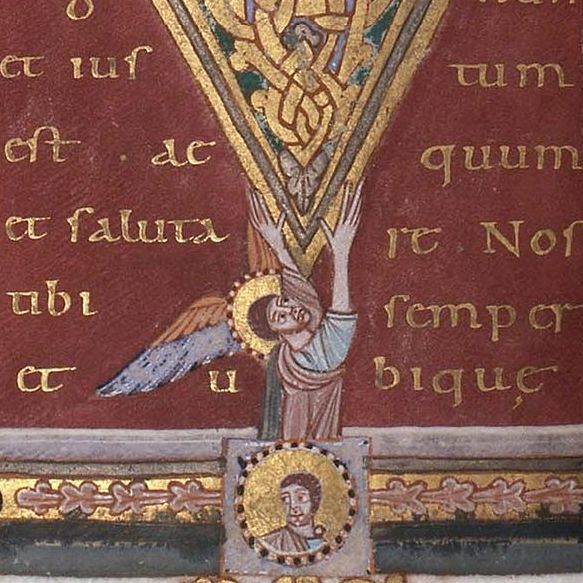 et ius tum
est · ac quum
et saluta re · Nos
tibi semper
et u biquę